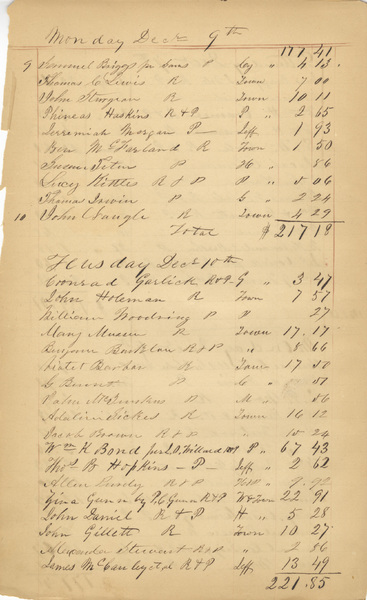 Monday Dec 9th
177 41
9 Samuel Briggs for Sons P Cy " 4 13
Thomas C Lewis R Town 7 00
John Sturgeon R Town 10 11
Phineas Haskins R & P P " 2 65
Jeremiah Morgan P Jeff " 1 93
Ben McFarland R Town 1 50
Turner Peter P H " 86
Lucy Little R & P P " 5 06
Thomas Irwin P C " 2 24
10 John Slaugle R Town 4 29
Total $ 217 18
Tuesday Dec 10th
Coonrad Garlick R & P G " 3 47
John Holeman R Town 7 57
William Woodring P P 27
Mary Musser R Town 17 17
R & P " 8 66
R Town 17 50
G Burnt P G "
John P M " 86
Adaline Sickes R Town 16 12
Jacob Brown R & P " 10 24
Wm H Bond per S. D. Willard P " 67 43
Thos B Hopkins P Jeff " 2 62
Allen R & P H P " 9.92
Gunn by Gunn R & P W & Town 22 91
John Daniel R & P H " 5 28
John Gillett R Town 10 27
Alexander Stewart R & P " 2 86
James McCauley R & P Jeff 13 49
221.85